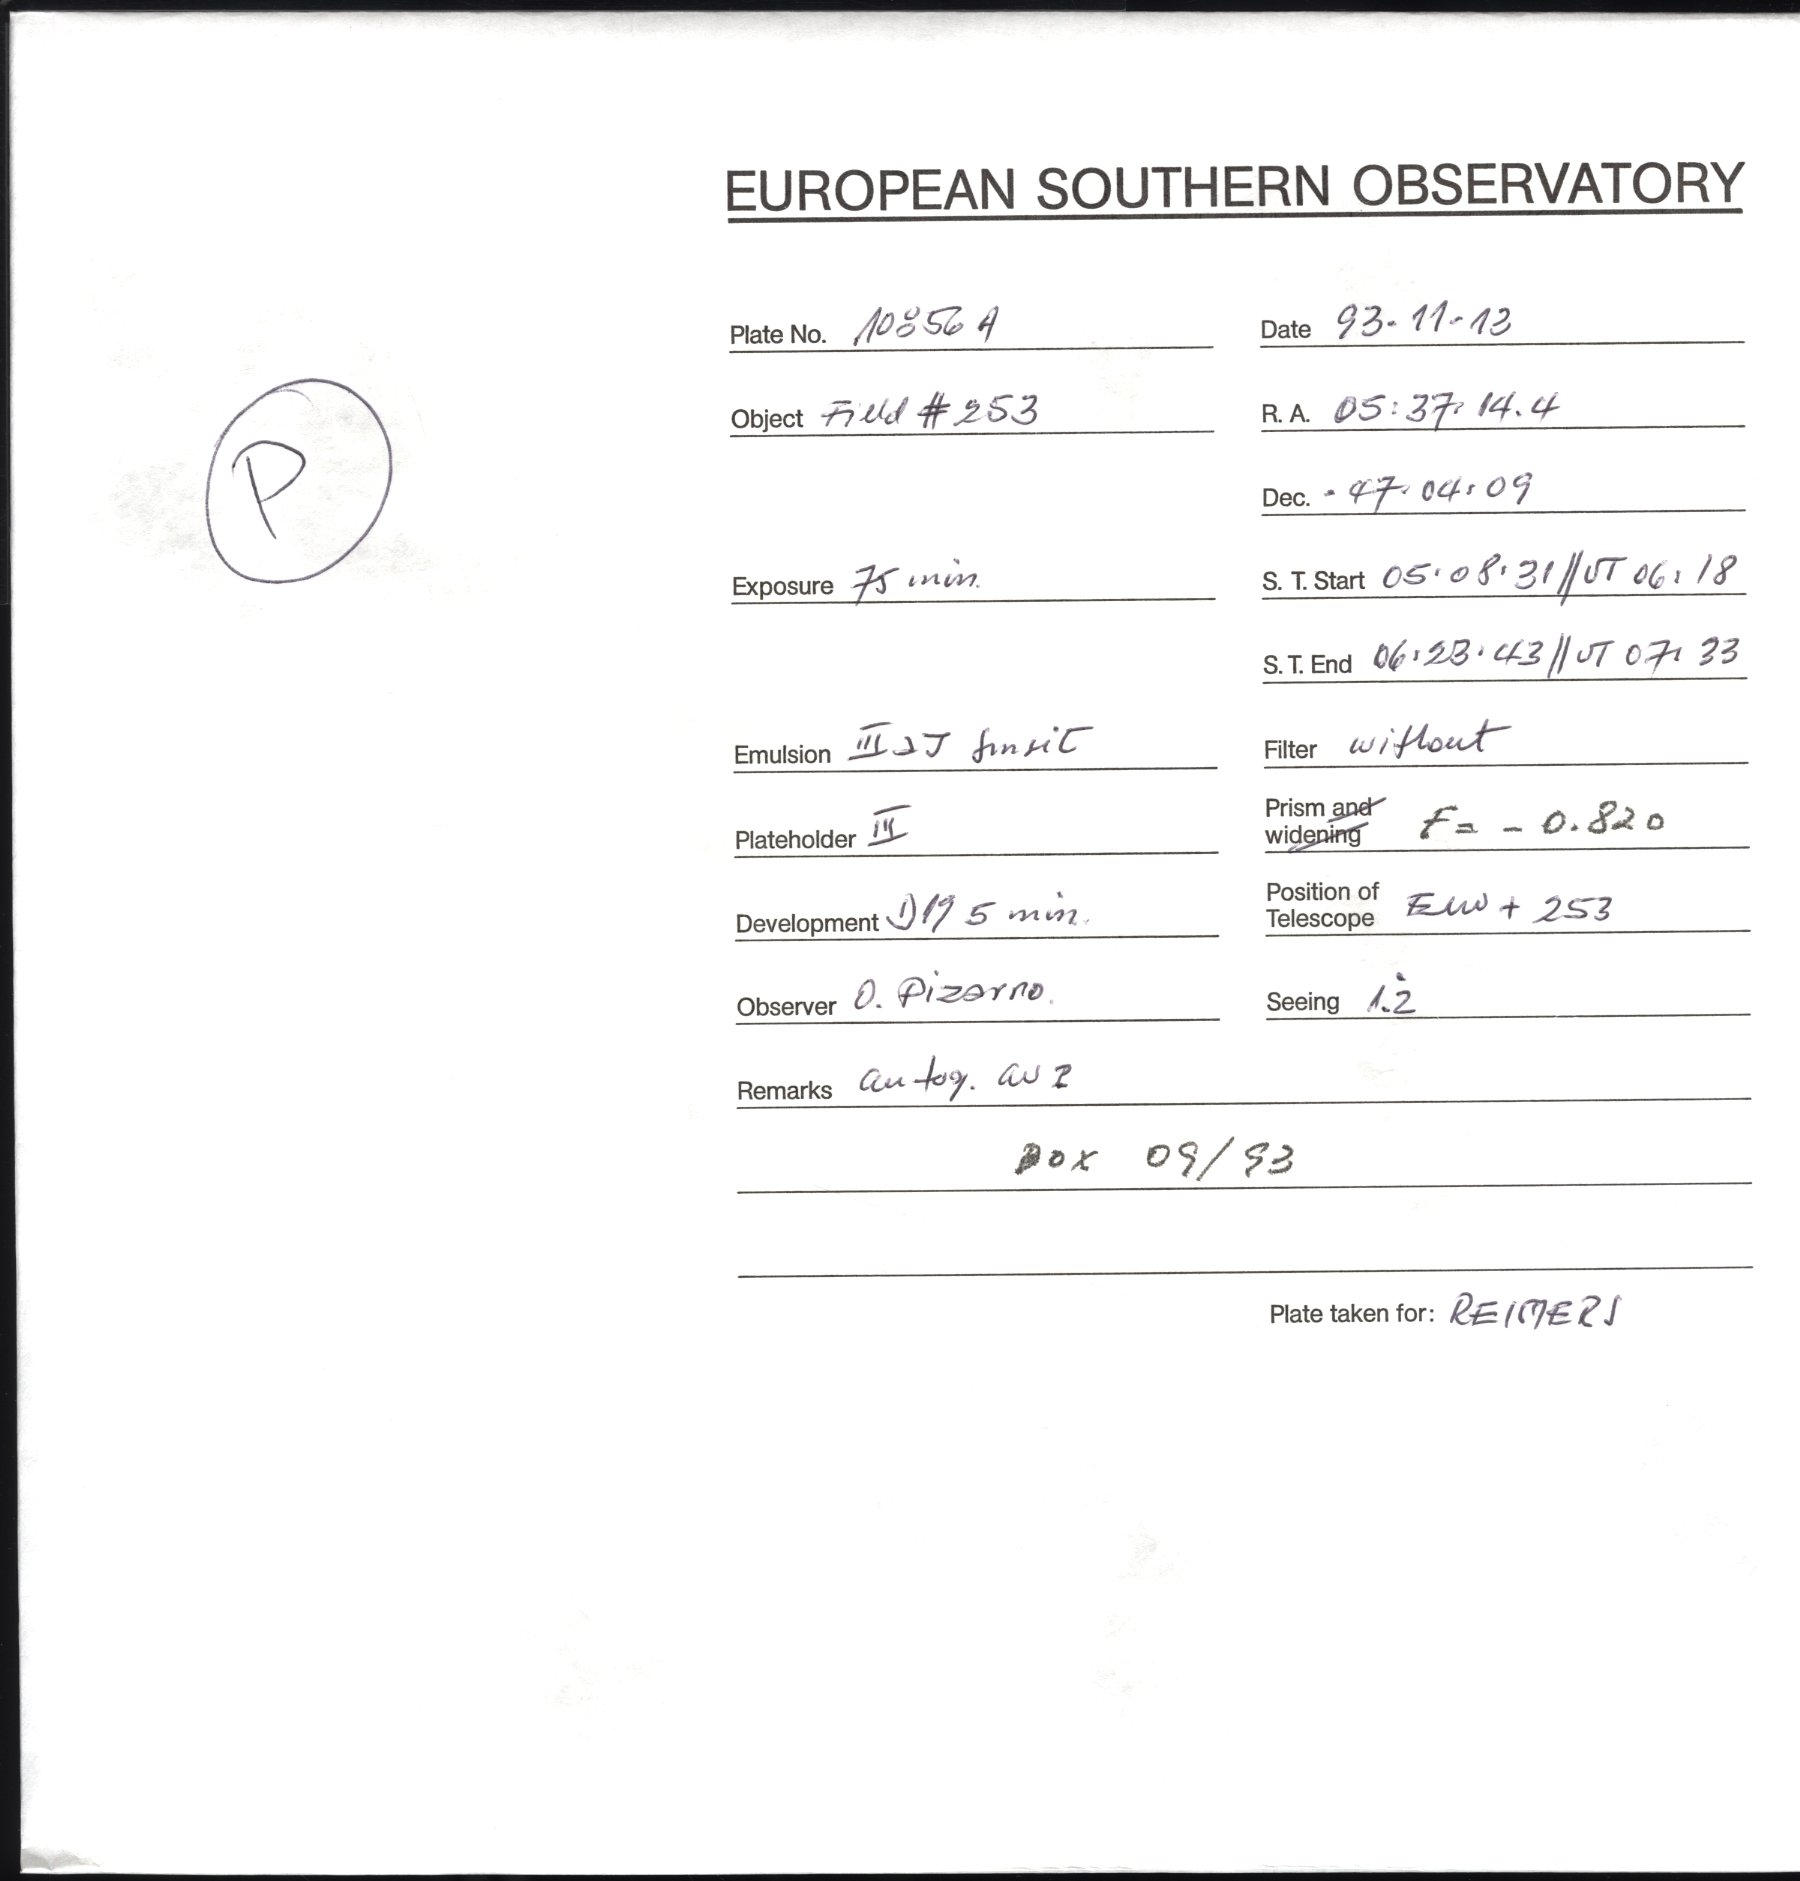 EUROPEAN SOUTHERN OBSERVATORY
Plate No. 10856 A
Date 93-11-13
Object Field # 253
R. A. 05:37:14.4
P
Dec. - 47:04:09
Exposure 75 min.
S. T. Start 05:08:31 // UT 06:18
S. T. End 06:23:43 // UT 07:33
Emulsion III a J
Filter without
Plateholder III
Prism and
widening F = - 0.820
Development D19 5 min.
Position of
Telescope + 253
Observer O. Pizarro.
Seeing 1.2
Remarks autog.
Box 09/93
Plate taken for: REIMERS